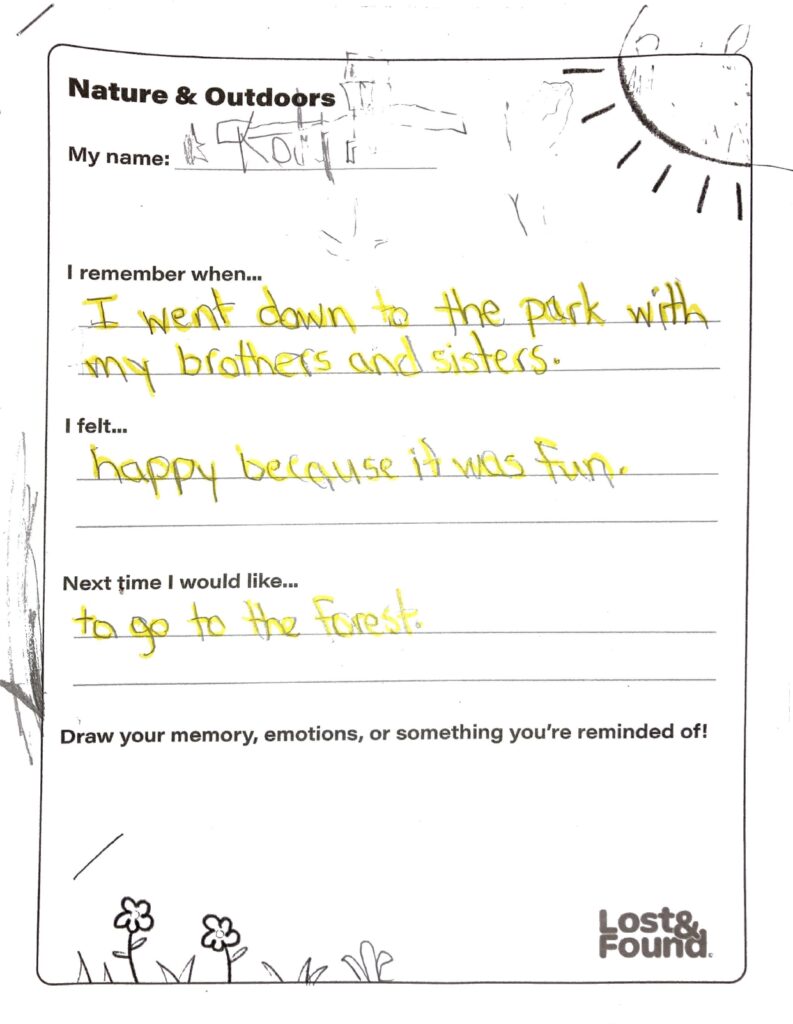 Nature & Outdoors
My name:
I remember when...
I went down to the park with
my brothers and sisters.
I felt...
happy because it was fun.
Next time I would like...
to go to the forest.
Draw your memory, emotions, or something you're reminded of!
Lost&
Found.